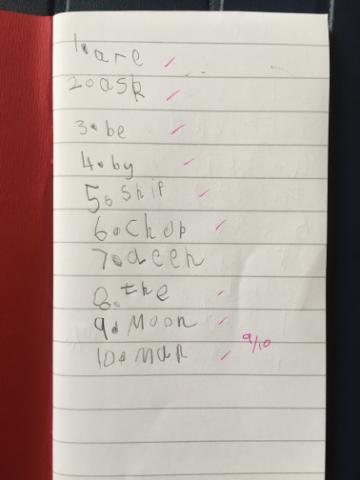 1. are
2. ask
3. be
4. by
5. Ship
6. Chop
7. deen
8. the
9. Moon
10. Man
9/10